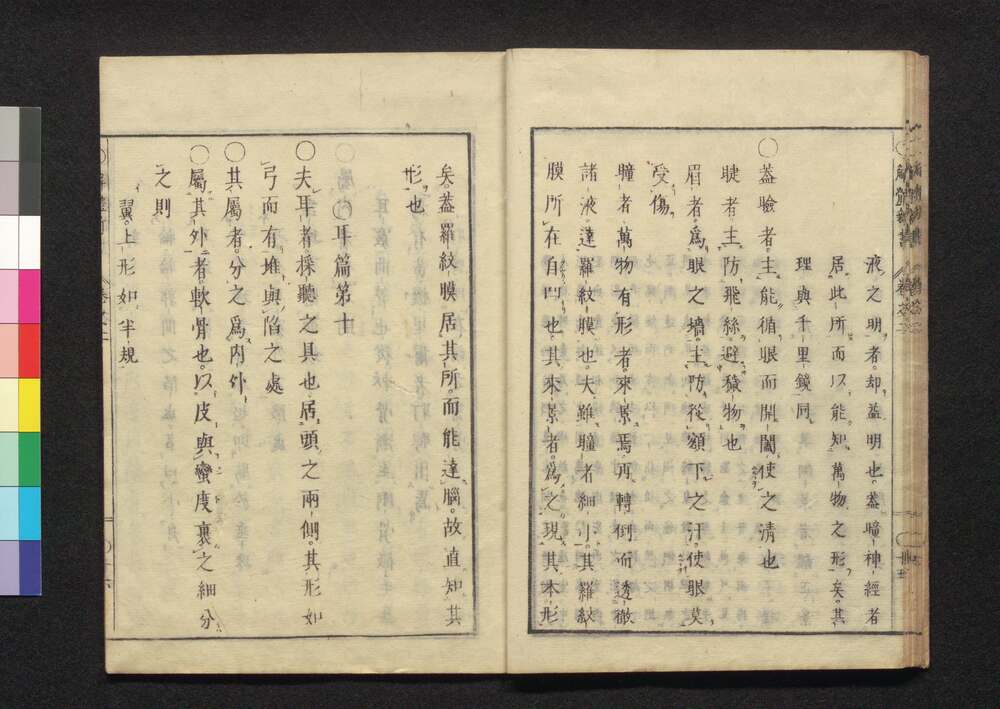 液之明者却益明也蓋瞳神經者
居此所而以能知萬物之形矣其
理與千里鏡同
〇蓋瞼者主能循眼而開闔使之清也
睫者主防飛絲避穢物也
眉者爲眼之墻主防從額下之汗使眼莫
受傷
瞳者萬物有形者來景焉再轉倒而透徹
諸液達羅紋膜也夫雖瞳者細小其羅紋
膜所在自門也其來景者爲之現其本形
矣蓋羅紋膜居其所而能達腦故直知其
形也
〇耳篇第十
〇夫耳者採聽之具也居頭之兩側其形如
弓而有堆與陷之處
〇其屬者分之爲内外
〇屬其外者軟骨也以皮與蠻度裹之細分
之則
翼上形如半規